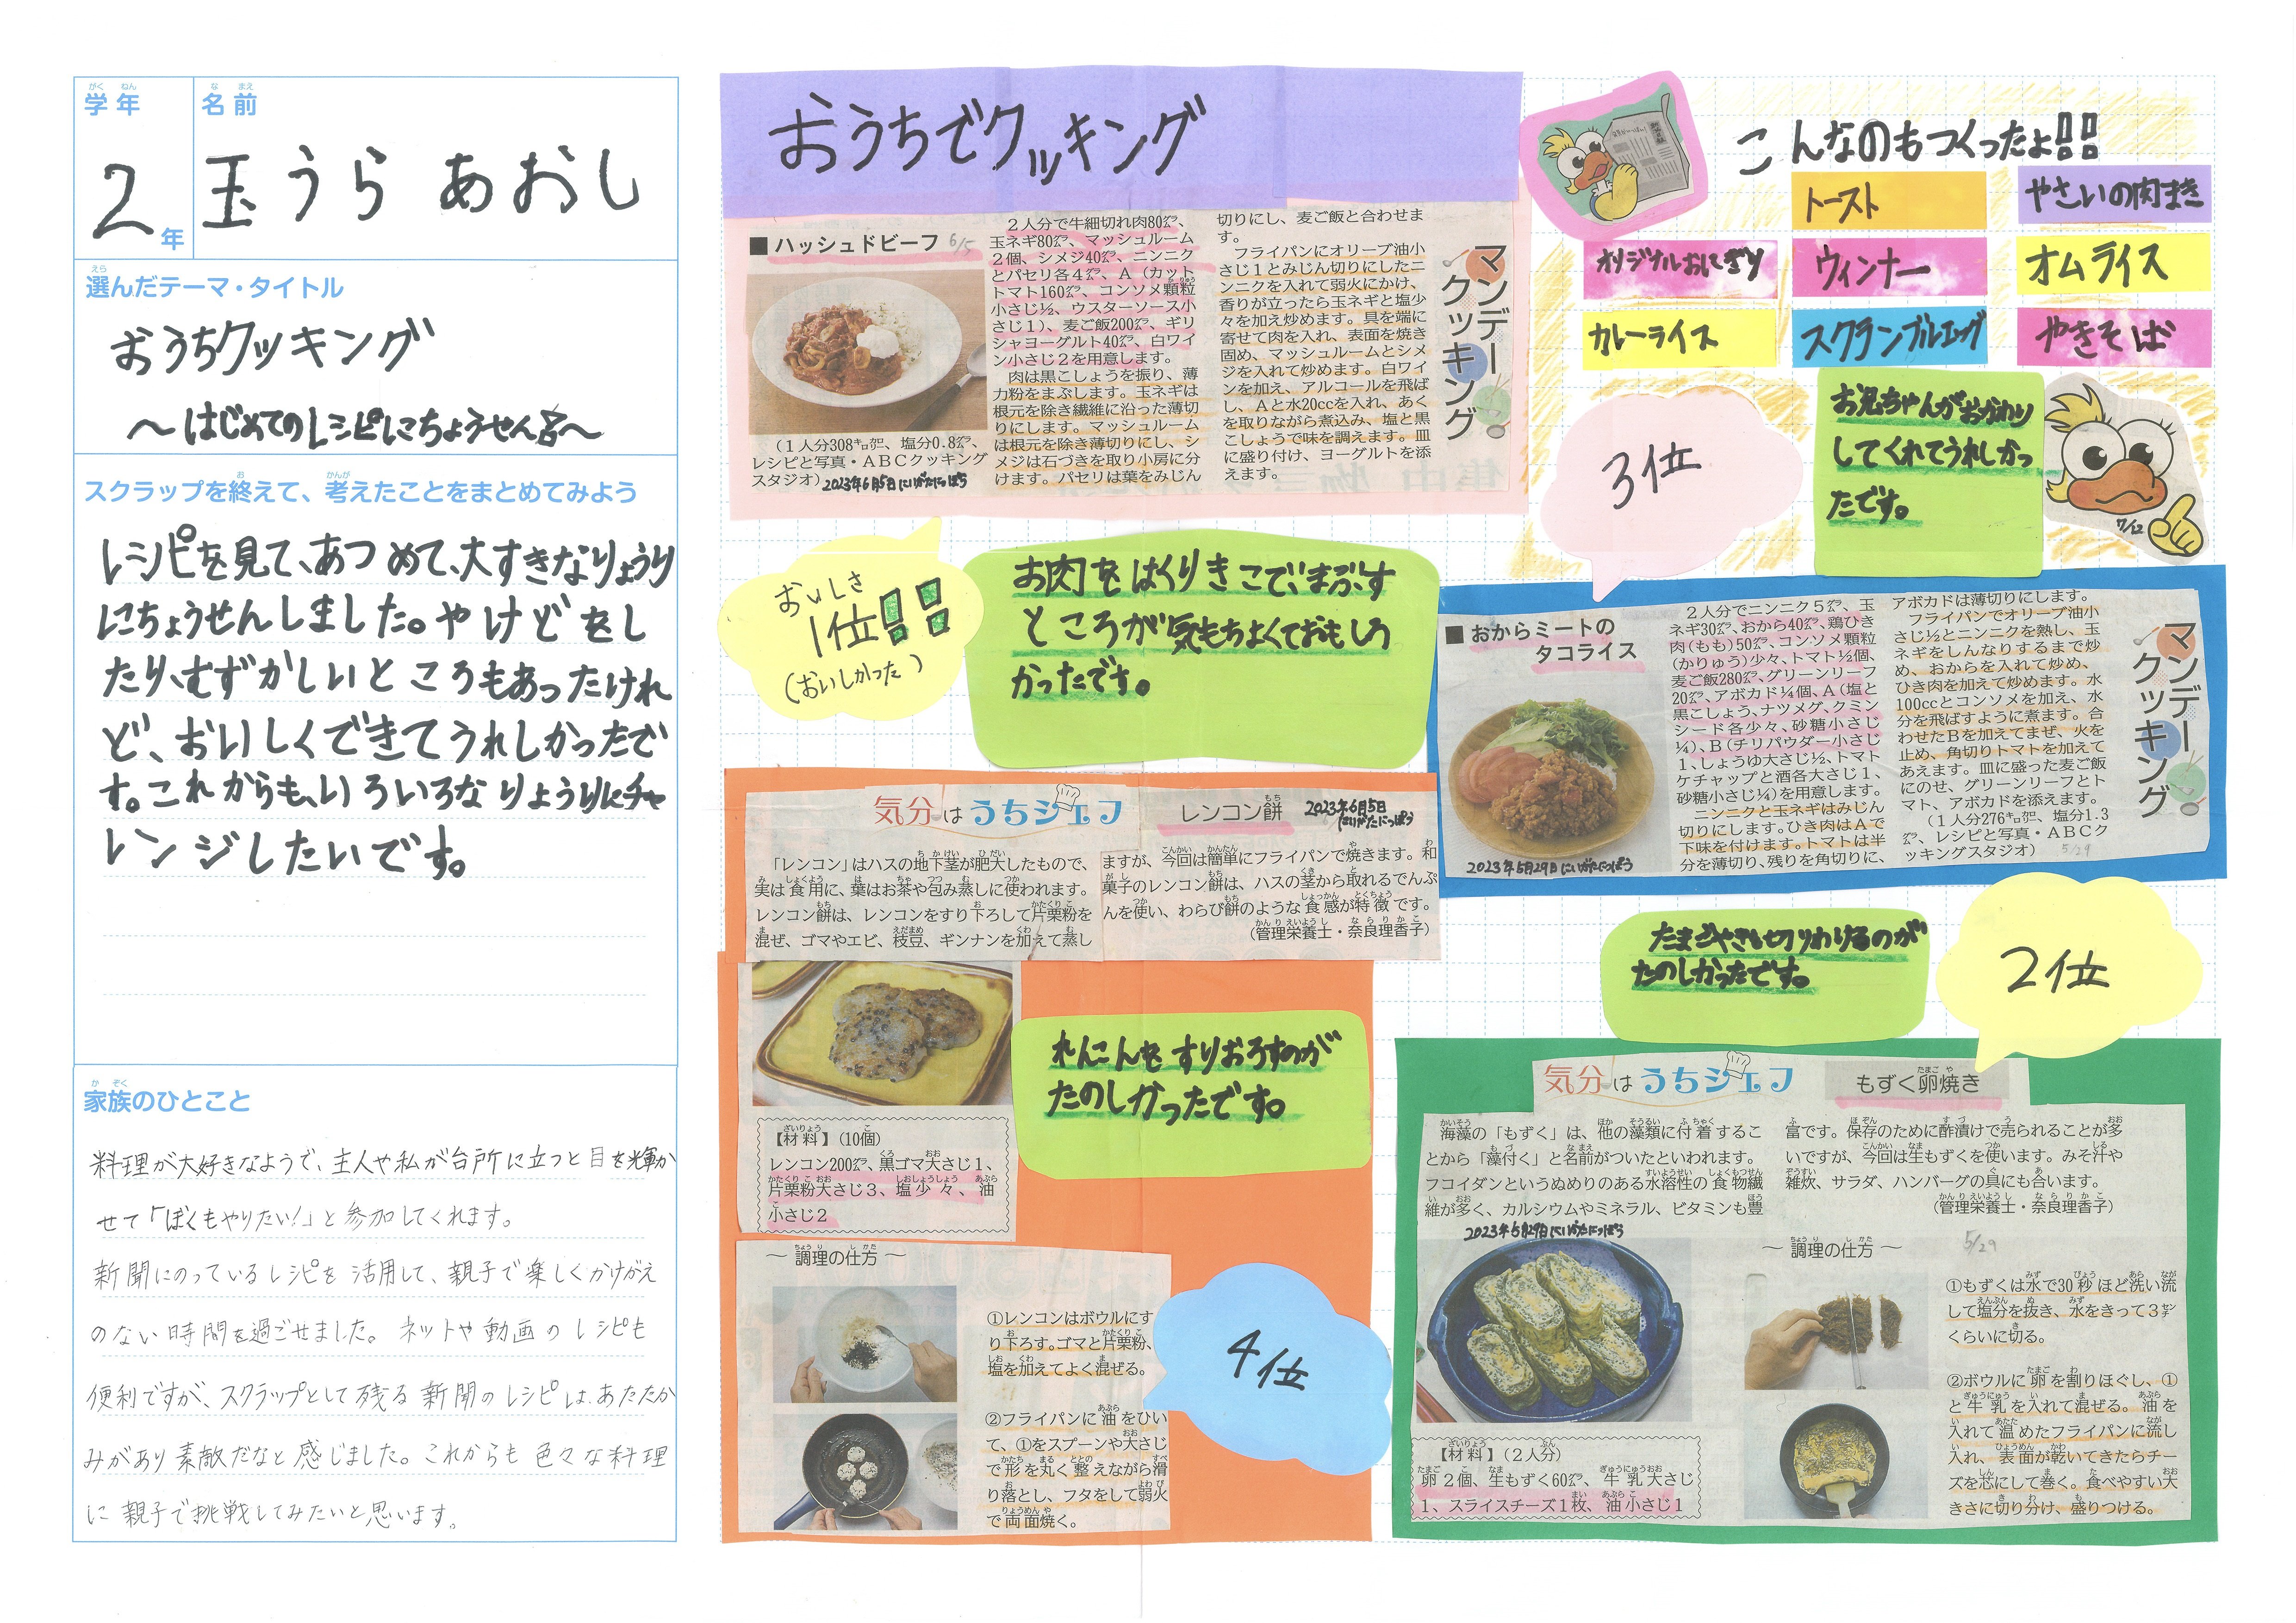 学年
2年
名前
玉うら あおし
選んだテーマ・タイトル
おうちクッキング
～はじめてのレシピにちょうせん～
スクラップを終えて、考えたことをまとめてみよう
レシピを見て、あつめて、大すきなりょうり
にちょうせんしました。やけどをし
たり、むずかしいところもあったけれ
ど、おいしくできてうれしかったで
す。これからも、いろいろなりょうりにチャ
レンジしたいです。
家族のひとこと
料理が大好きなようで、主人や私が台所に立つと目を輝か
せて「ぼくもやりたい!」と参加してくれます。
新聞にのっているレシピを活用して、親子で楽しくかけがえ
のない時間を過ごせました。ネットや動画のレシピも
便利ですが、スクラップとして残る新聞のレシピは、あたたか
みがあり素敵だなと感じました。これからも色々な料理
に親子で挑戦してみたいと思います。
おうちでクッキング
■ハッシュドビーフ 6/5
(1人分308㌔㌍、塩分0.8㌘、
レシピと写真・ABCクッキング
スタジオ)2023年6月5日にいがたにっぽう
2人分で牛細切れ肉80㌘、
玉ネギ80㌘、マッシュルーム
2個、シメジ40㌘、ニンニク
とパセリ各4㌘、A(カット
トマト160㌘、コンソメ顆粒
小さじ½、ウスターソース小
さじ1)、麦ご飯200㌘、ギリ
シャヨーグルト40㌘、白ワイ
ン小さじ2を用意します。
肉は黒こしょうを振り、薄
力粉をまぶします。玉ネギは
根元を除き繊維に沿った薄切
りにします。マッシュルーム
は根元を除き薄切りにし、シ
メジは石づきを取り小房に分
けます。パセリは葉をみじん
切りにし、麦ご飯と合わせま
す。
フライパンにオリーブ油小
さじ1とみじん切りにしたニ
ンニクを入れて弱火にかけ、
香りが立ったら玉ネギと塩少
々を加え炒めます。具を端に
寄せて肉を入れ、表面を焼き
固め、マッシュルームとシメ
ジを入れて炒めます。白ワイ
ンを加え、アルコールを飛ば
し、Aと水20ccを入れ、あく
を取りながら煮込み、塩と黒
こしょうで味を調えます。皿
に盛り付け、ヨーグルトを添
えます。
マンデー
クッキング
こんなのもつくったよ!!
トースト
やさいの肉まき
オリジナルおにぎり
ウィンナー
オムライス
カレーライス
スクランブルエッグ
やきそば
3位
お兄ちゃんがおかわり
してくれてうれしかっ
たです。
7/12
おいしさ
1位!!
(おいしかった)
お肉をはくりきこで、まぶす
ところが気もちよくておもしろ
かったです。
■おからミートの
タコライス
2023年5月29日にいがたにっぽう
2人分でニンニク5㌘、玉
ネギ30㌘、おから40㌘、鶏ひき
肉(もも)50㌘、コンソメ顆粒
(かりゅう)少々、トマト½個、
麦ご飯280㌘、グリーンリーフ
20㌘、アボカド¼個、A(塩と
黒こしょう、ナツメグ、クミン
シード各少々、砂糖小さじ
¼)、B(チリパウダー小さじ
1、しょうゆ大さじ½、トマト
ケチャップと酒各大さじ1、
砂糖小さじ¼)を用意します。
ニンニクと玉ネギはみじん
切りにします。ひき肉はAで
下味を付けます。トマトは半
分を薄切り、残りを角切りに、
アボカドは薄切りにします。
フライパンでオリーブ油小
さじ½とニンニクを熱し、玉
ネギをしんなりするまで炒
め、おからを入れて炒め、
ひき肉を加えて炒めます。水
100ccとコンソメを加え、水
分を飛ばすように煮ます。合
わせたBを加えてまぜ、火を
止め、角切りトマトを加えて
あえます。皿に盛った麦ご飯
にのせ、グリーンリーフとト
マト、アボカドを添えます。
(1人分276㌔㌍、塩分1.3
㌘、レシピと写真・ABCク
ッキングスタジオ) 5/29
マンデー
クッキング
気分はうちシェフ
レンコン餅
2023年6月5日
にいがたにっぽう
「レンコン」はハスの地下茎が肥大したもので、
実は食用に、葉はお茶や包み蒸しに使われます。
レンコン餅は、レンコンをすり下ろして片栗粉を
混ぜ、ゴマやエビ、枝豆、ギンナンを加えて蒸し
ますが、今回は簡単にフライパンで焼きます。和
菓子のレンコン餅は、ハスの茎から取れるでんぷ
んを使い、わらび餅のような食感が特徴です。
(管理栄養士・奈良理香子)
れんこんをすりおろすのが
たのしかったです。
【材料】(10個)
レンコン200㌘、黒ゴマ大さじ1、
片栗粉大さじ3、塩少々、油
小さじ2
～調理の仕方～
①レンコンはボウルにす
り下ろす。ゴマと片栗粉、
塩を加えてよく混ぜる。
②フライパンに油をひい
て、①をスプーンや大さじ
で形を丸く整えながら滑
り落とし、フタをして弱火
で両面焼く。
4位
たまごやきを切りわけるのが
たのしかったです。
2位
気分はうちシェフ
もずく卵焼き
海藻の「もずく」は、他の藻類に付着するこ
とから「藻付く」と名前がついたといわれます。
フコイダンというぬめりのある水溶性の食物繊
維が多く、カルシウムやミネラル、ビタミンも豊
富です。保存のために酢漬けで売られることが多
いですが、今回は生もずくを使います。みそ汁や
雑炊、サラダ、ハンバーグの具にも合います。
(管理栄養士・奈良理香子)
2023年5月29日にいがたにっぽう
【材料】(2人分)
卵2個、生もずく60㌘、牛乳大さじ
1、スライスチーズ1枚、油小さじ1
～調理の仕方～
5/29
①もずくは水で30秒ほど洗い流
して塩分を抜き、水をきって3㌢
くらいに切る。
②ボウルに卵を割りほぐし、①
と牛乳を入れて混ぜる。油を
入れて温めたフライパンに流し
入れ、表面が乾いてきたらチー
ズを芯にして巻く。食べやすい大
きさに切り分け、盛りつける。